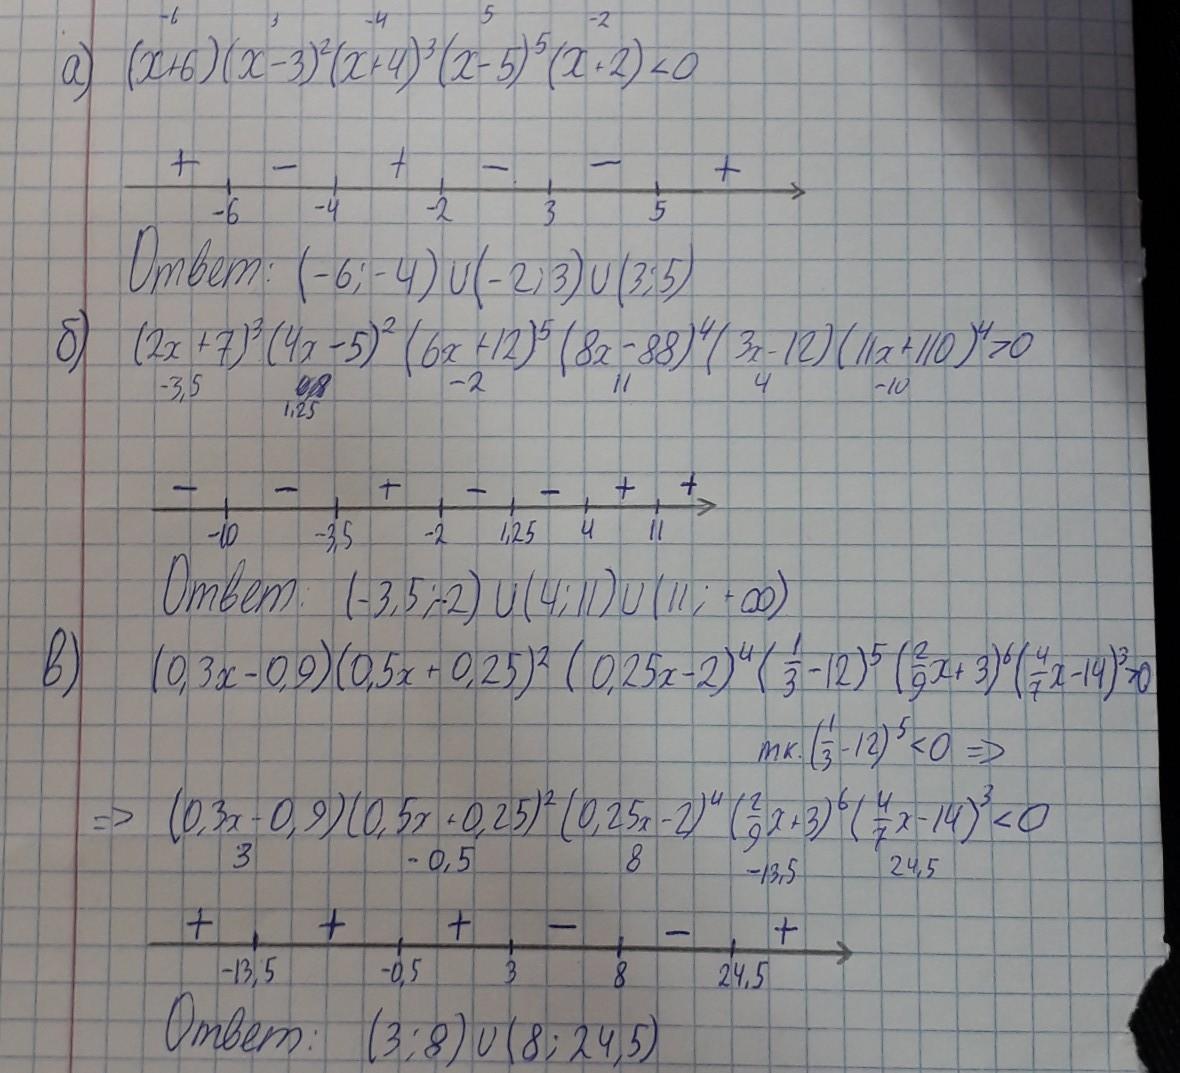 -6 3 -4 5 -2
а) (x+6)(x-3)²(x+4)³(x-5)⁵(x+2)<0
+ - + - - +
-6 -4 -2 3 5
Ответ: (-6;-4)∪(-2;3)∪(3;5)
б) (2x+7)³(4x-5)²(6x+12)⁵(8x-88)⁴(3x-12)(11x+110)⁴>0
-3,5 -2 11 4 -10
1,25
- - + - - + +
-10 -3,5 -2 1,25 4 11
Ответ: (-3,5;-2)∪(4;11)∪(11;+∞)
в) (0,3x-0,9)(0,5x+0,25)²(0,25x-2)⁴(1/3-12)⁵(2/9x+3)⁶(4/7x-14)³>0
тк. (1/3-12)⁵<0 =>
=> (0,3x-0,9)(0,5x+0,25)²(0,25x-2)⁴(2/9x+3)⁶(4/7x-14)³<0
3 -0,5 8 -13,5 24,5
+ + + - - +
-13,5 -0,5 3 8 24,5
Ответ: (3;8)∪(8;24,5)